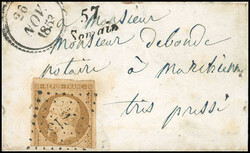 26
NOV.
1853
57
Somain
Monsieur
Monsieur debonde
notaire à Marchiennes
très pressé
REPUB FRANC